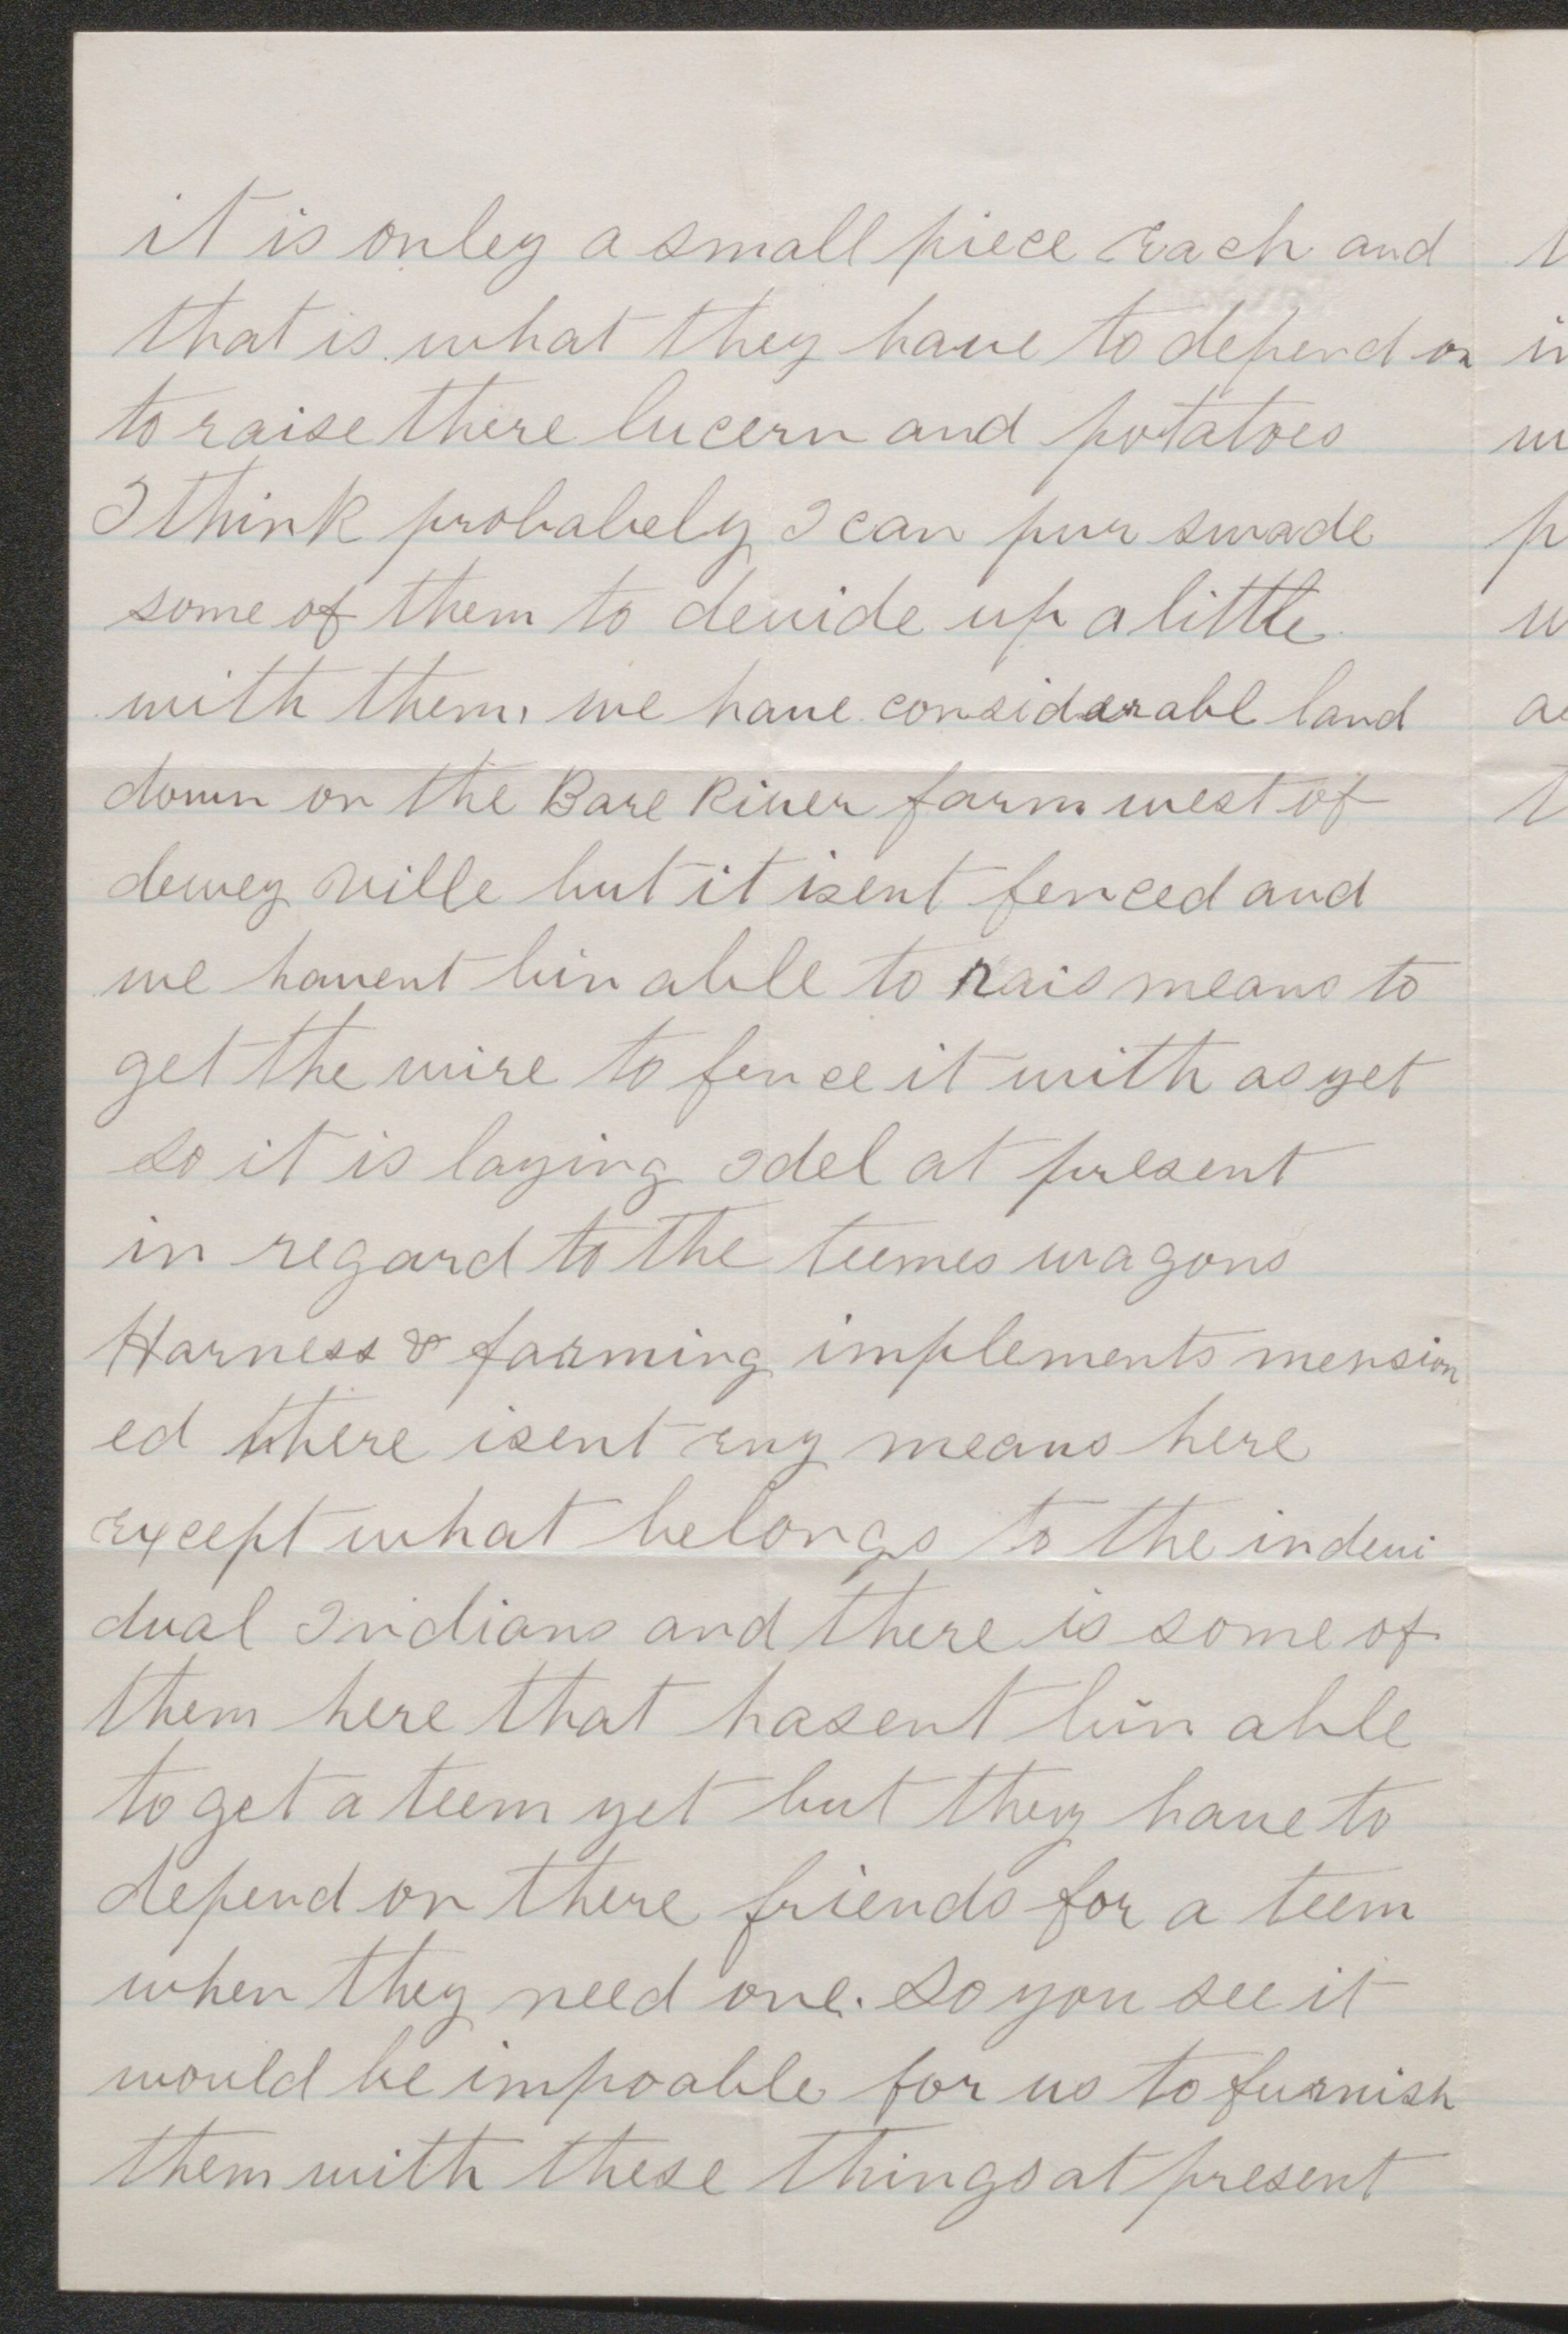 it is onley a small piece Each and
that is what they have to depend on
to raise there lucern and potatoes
I think probabely I can pur swade
some of them to devide up a little
with them, we have considarabl land
down on the Bare River farm west of
dewey ville but it isent fenced and
we havent bin able to rais means to
get the wire to fence it with as yet
so it is laying Idel at present
in regard to the teemes wagons
Harness & farming implements mension
ed there isent Eny means here
Except what belongs to the indevi
dual Indians and there is some of
them here that hasent bin able
to get a teem yet but they have to
depend on there friends for a teem
when they need one. So you see it
would be impoable for us to furnish
them with these things at present